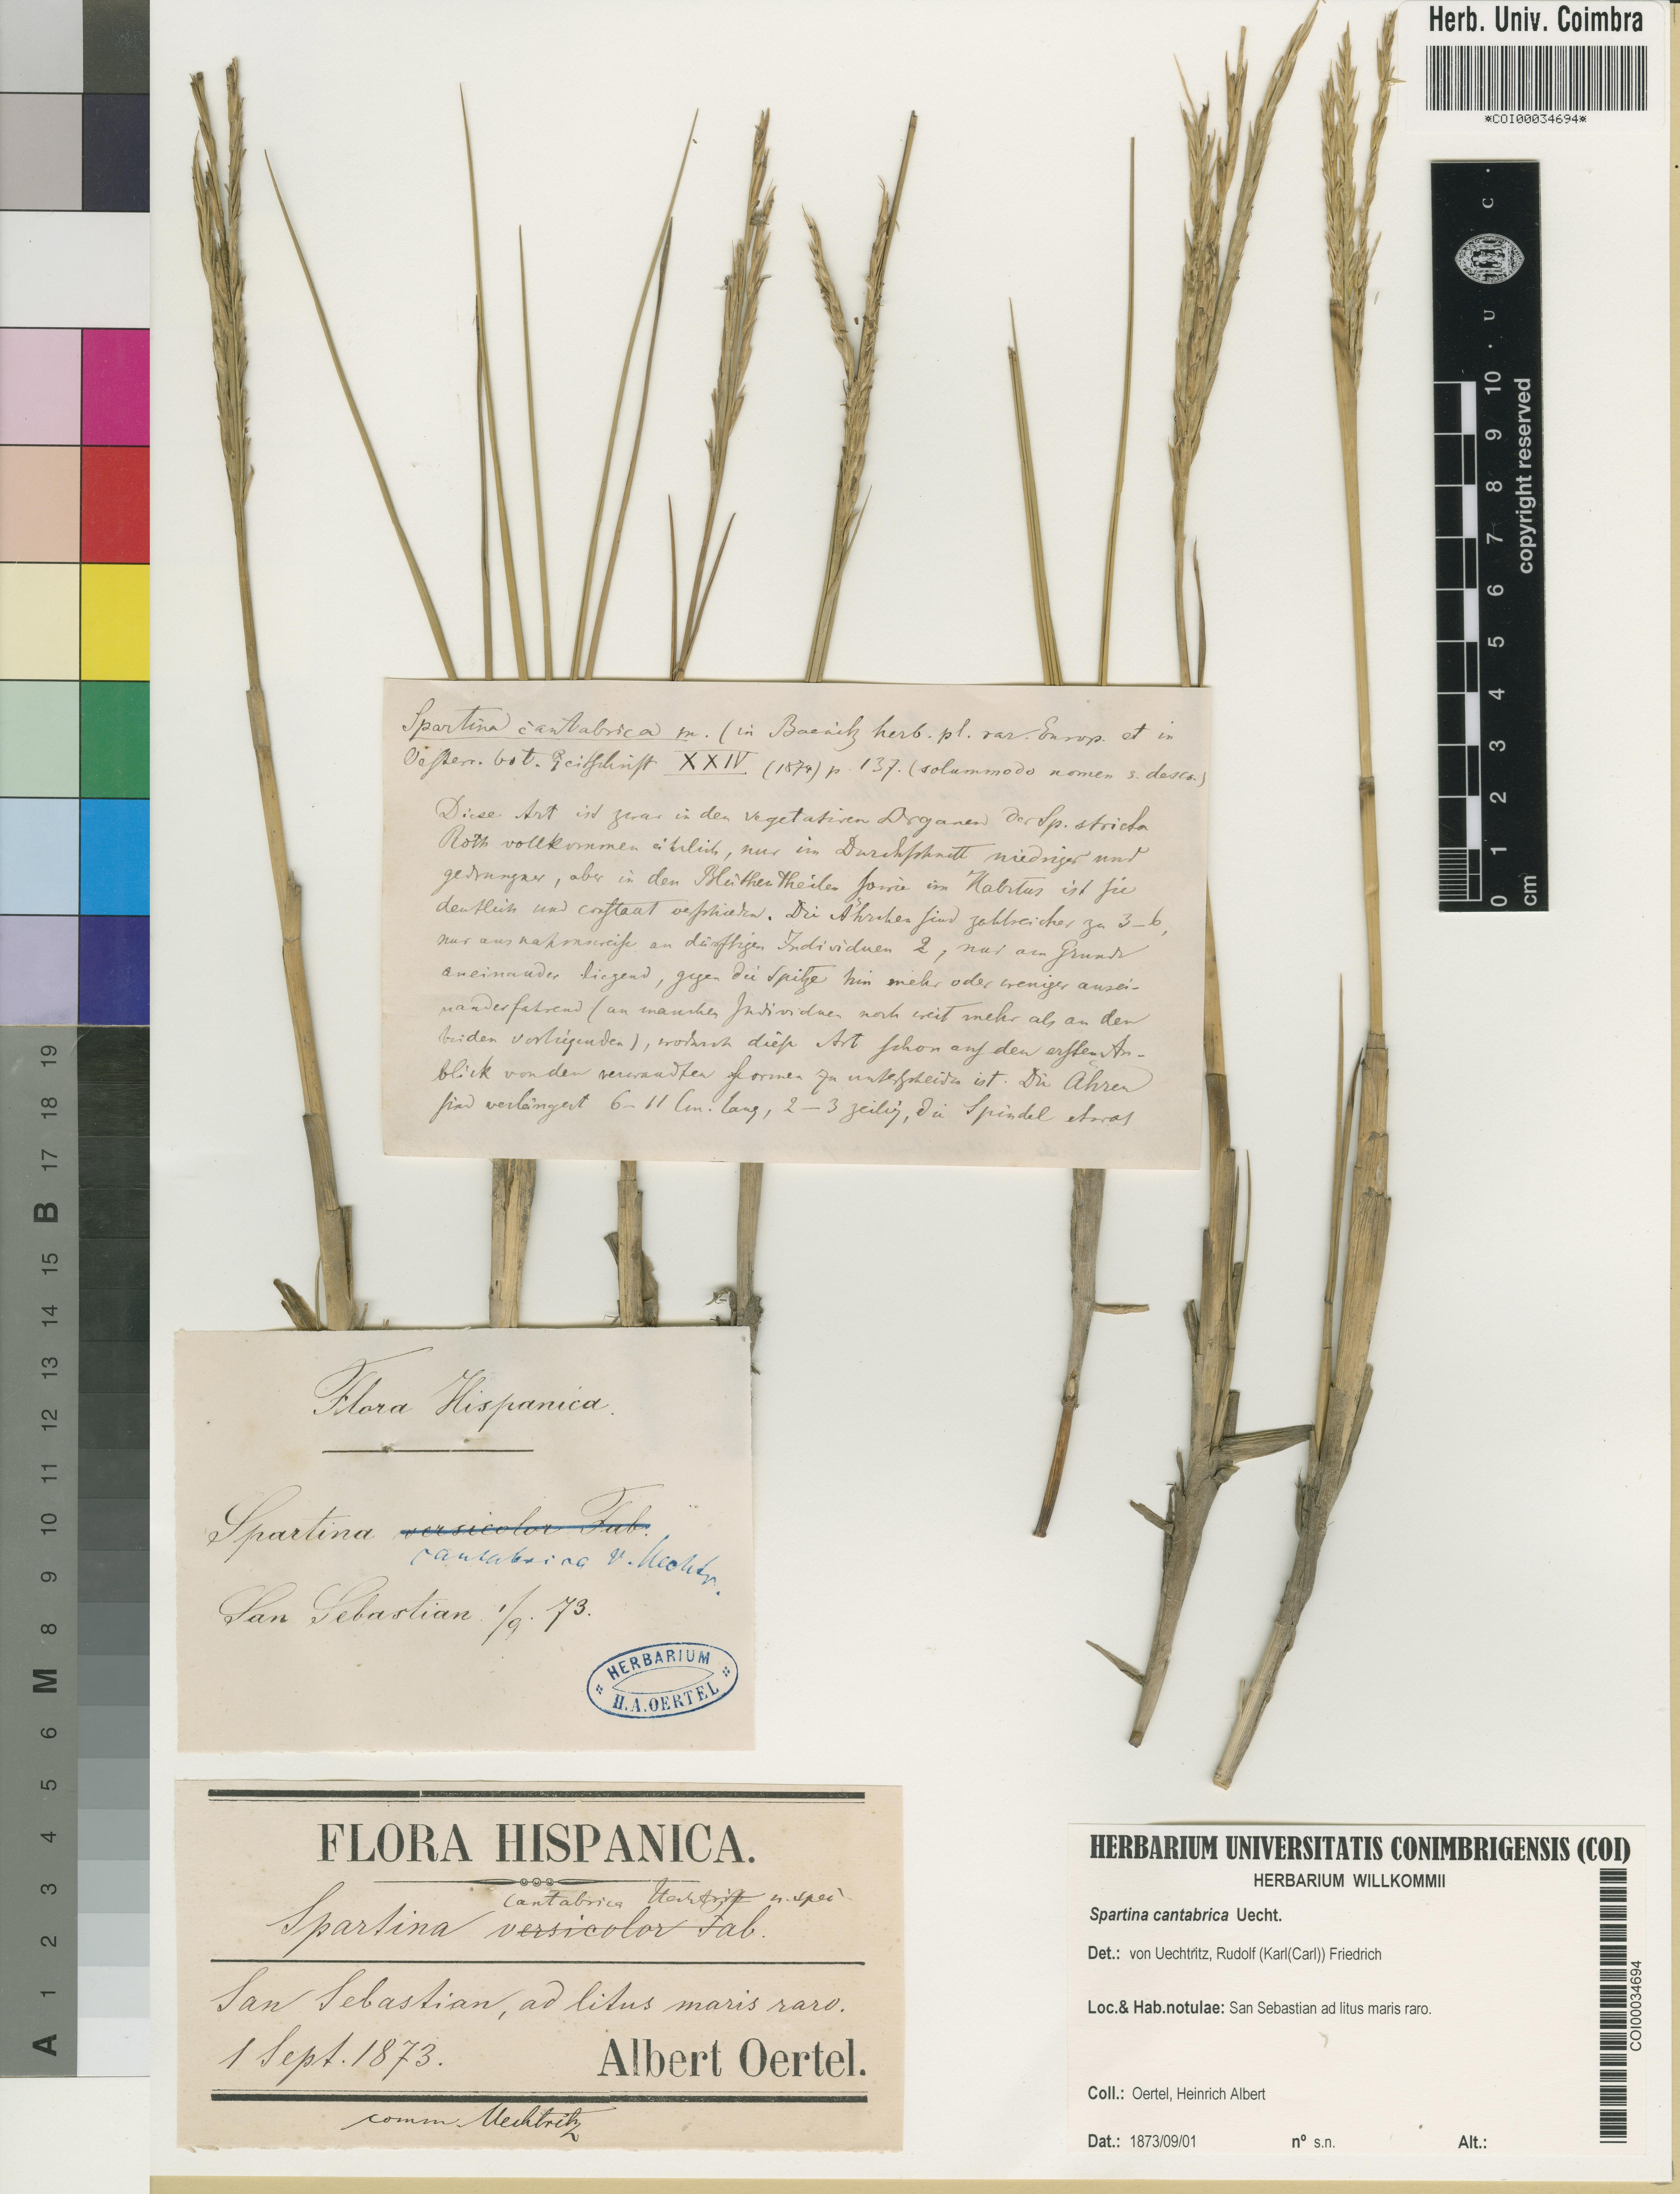 Herb. Univ. Coimbra
*COI00034694*
Spartina cantabrica m. (in Baenitz herb. pl. rar. Europ. et in
Oesterr. bot. Zeitschrift XXIV (1874) p. 137. (solummodo nomen s. descr.)
Diese Art ist zwar in den vegetativen Organen der Sp. stricta
Roth vollkommen ähnlich, nur im Durchschnitt niedriger und
gedrungner, aber in den Blüthentheilen sowie im Habitus ist sie
deutlich und constant verschieden. Die Ährchen sind zahlreicher zu 3–6,
nur ausnahmsweise an dürftigen Individuen 2, nur am Grunde
aneinander liegend, gegen die Spitze hin mehr oder weniger ausei-
nanderfahrend (an manchen Individuen noch weit mehr als an den
beiden vorliegenden), wodurch diese Art schon auf den ersten An-
blick von den verwandten Formen zu unterscheiden ist. Die Ähren
sind verlängert 6–11 Cm. lang, 2–3 zeilig, die Spindel etwas
Flora Hispanica.
Spartina versicolor Fab.
cantabrica v. Uechtr.
San Sebastian 1/9. 73.
HERBARIUM
H.A.OERTEL
FLORA HISPANICA.
cantabrica Uechtritz n. spei
Spartina versicolor Fab.
San Sebastian, ad litus maris raro.
1 Sept. 1873.
Albert Oertel.
comm. Uechtritz
HERBARIUM UNIVERSITATIS CONIMBRIGENSIS (COI)
HERBARIUM WILLKOMMII
Spartina cantabrica Uecht.
Det.: von Uechtritz, Rudolf (Karl(Carl)) Friedrich
Loc.& Hab.notulae: San Sebastian ad litus maris raro.
Coll.: Oertel, Heinrich Albert
Dat.: 1873/09/01 nº s.n. Alt.:
COI00034694
C · U · C
0 1 2 3 4 5 6 7 8 9 10
cm
copyright reserved
A 1 2 3 4 5 6 M 8 9 10 11 12 13 14 15 B 17 18 19